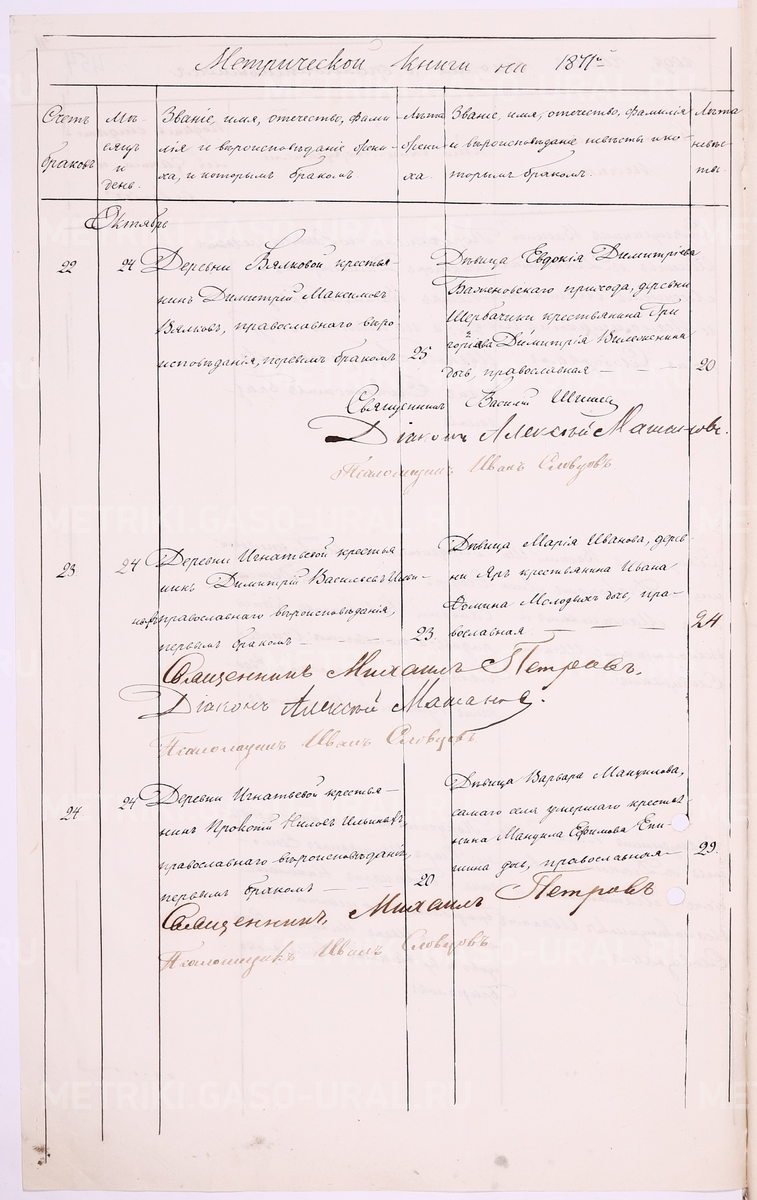 Метрической книги на 1871й
Счетъ браковъ
Мѣсяцъ и день.
Званіе, имя, отчество, фами-
лія и вѣроисповѣданіе жени-
ха, и которымъ бракомъ
Лѣта жени-
ха
Званіе, имя, отчество, фамилія
и вѣроисповѣданіе невѣсты и ко-
торымъ бракомъ.
Лѣта
невѣс-
ты.
Октябрь
22
24
Деревни Вялковой крестья-
нинъ Димитрій Максимовъ
Вялковъ, православнаго вѣро
исповѣданія, первымъ бракомъ
25
Дѣвица Евдокія Димитріева
Баженовскаго прихода, деревни
Щербачихи крестьянина Гри
горіева Димитрія
дочь, православная
20
Священникъ Василій
Діаконъ Алексѣй
Псаломщикъ Иванъ Словцовъ
23
24
Деревни Игнатьевой крестья
нинъ Димитрій Васильевъ
православнаго вѣроисповѣданія,
первымъ бракомъ
23.
Дѣвица Марія Иванова, дерев-
ни Яръ крестьянина Ивана
Фомина Молодыхъ дочь, пра-
вославная
24
Священникъ Михаилъ Петровъ.
Діаконъ Алексѣй
Псаломщикъ Иванъ Словцовъ
24
24
Деревни Игнатьевой крестья-
нинъ Прокопій Ниловъ Ильиныхъ,
православнаго вѣроисповѣданія,
первымъ бракомъ
20
Дѣвица Варвара Мануилова,
самаго села умершаго крестья-
нина Мануила Ефимова Епи-
шина дочь, православная
29.
Священникъ Михаилъ Петровъ
Псаломщикъ Иванъ Словцовъ
METRIKI.GASO-URAL.RU